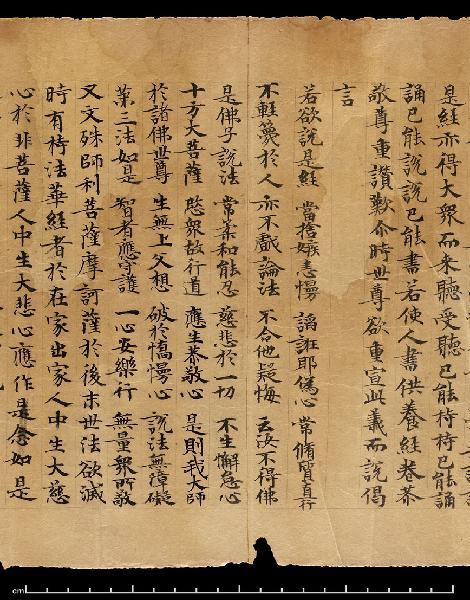 是經亦得大衆而来聽受聽已能持持已能誦
誦已能說說已能書若使人書供養經卷恭
敬尊重讚歎尒時世尊欲重宣此義而說偈
言
若欲說是經　當捨嫉恚慢　謟誑耶偽心　常脩質直行
不輕篾於人　亦不戲論法　不令他疑悔　云汝不得佛
是佛子說法　常柔和能忍　慈悲於一切　不生懈怠心
十方大菩薩　愍衆故行道　應生恭敬心　是則我大師
於諸佛世尊　生無上父想　破於憍慢心　說法無鄣礙
苐三法如是　智者應守護　一心安樂行　無量衆所敬
又文殊師利菩薩摩訶薩於後末世法欲滅
時有持法華經者於在家出家人中生大慈
心於非菩薩人中生大悲心應作是念如是